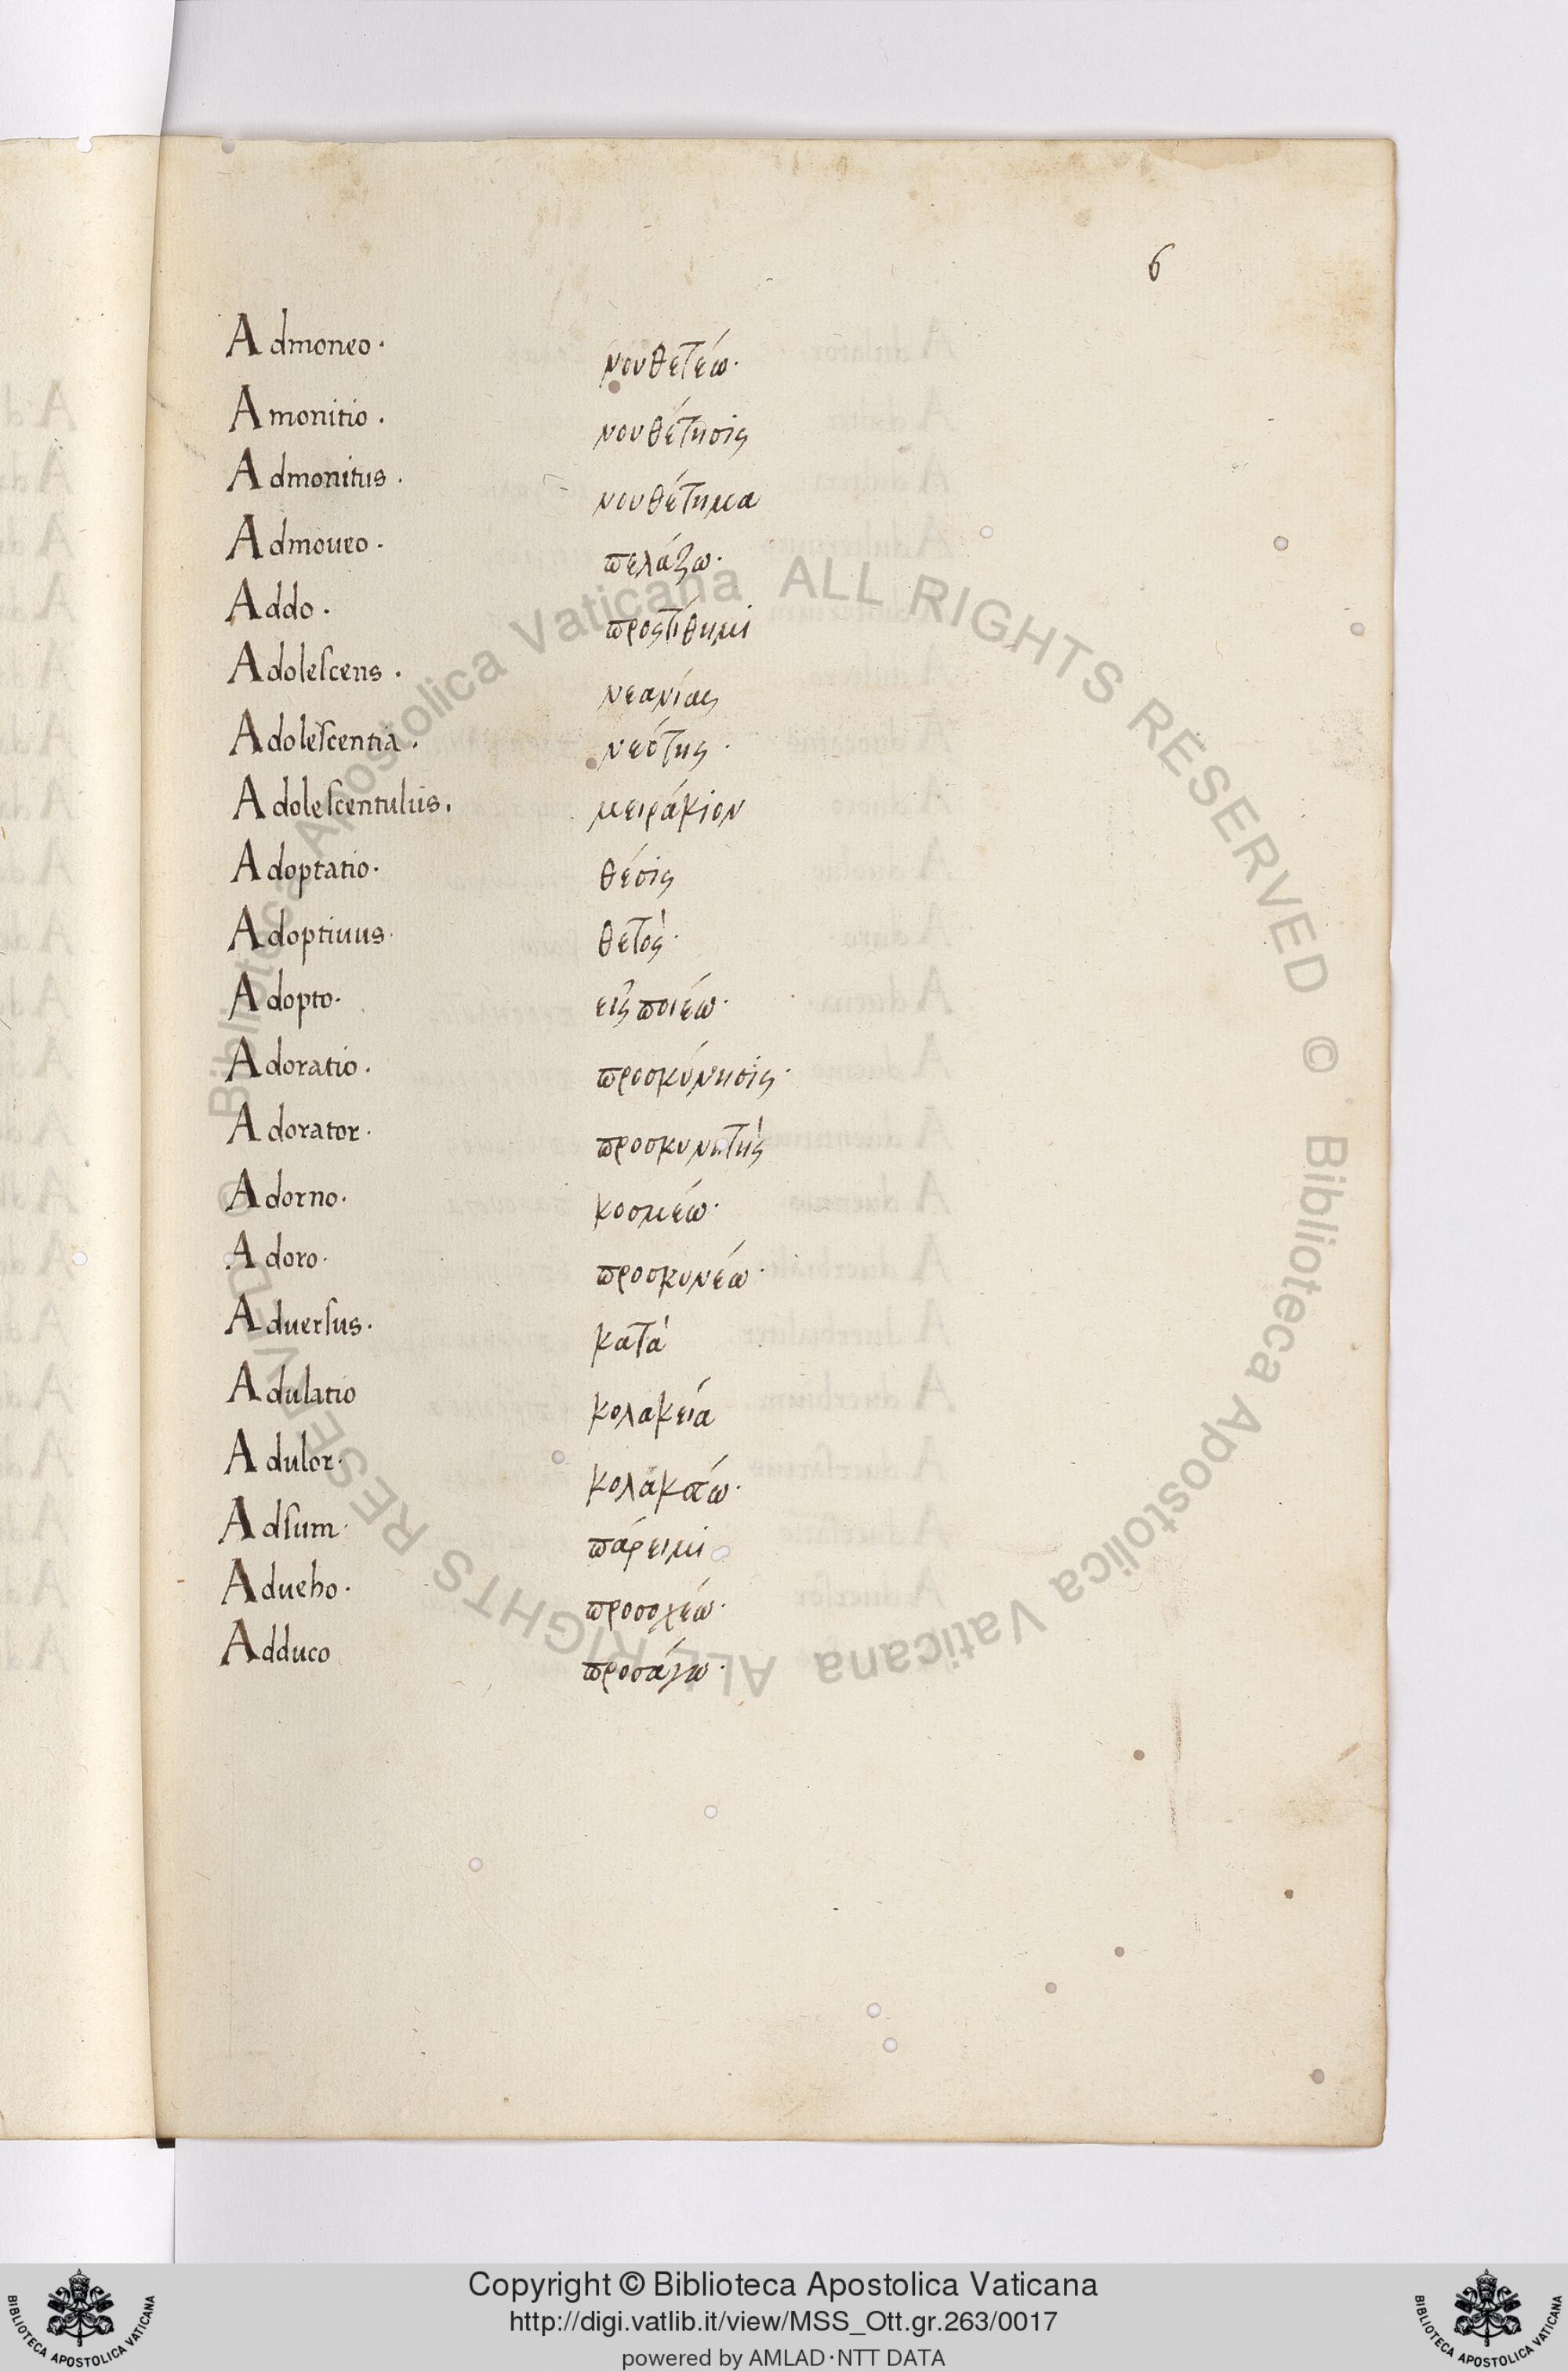 6
Admoneo. νουθετέω.
Amonitio. νουθέτησις
Admonitus. νουθέτημα
Admoueo. πελάζω.
Addo. προςτίθημι
Adoleſcens. νεανίας
Adoleſcentia. νεότης.
Adoleſcentulus. μειράκιον
Adoptatio. θέσις
Adoptiuus. θετὸς.
Adopto. εἰςποιέω.
Adoratio. προσκύνησις.
Adorator. προσκυνητὴς
Adorno. κοσμέω.
Adoro. προσκυνέω.
Aduerſus. κατὰ
Adulatio κολακεία
Adulor.
Adſum. πάρειμι
Adueho. προσοχέω.
Adduco προσάγω.
Biblioteca Apostolica Vaticana ALL RIGHTS RESERVED © Biblioteca Apostolica Vaticana ALL RIGHTS RESERVED ©
Copyright © Biblioteca Apostolica Vaticana
http://digi.vatlib.it/view/MSS_Ott.gr.263/0017
powered by AMLAD·NTT DATA
BIBLIOTECA APOSTOLICA VATICANA
BIBLIOTECA APOSTOLICA VATICANA